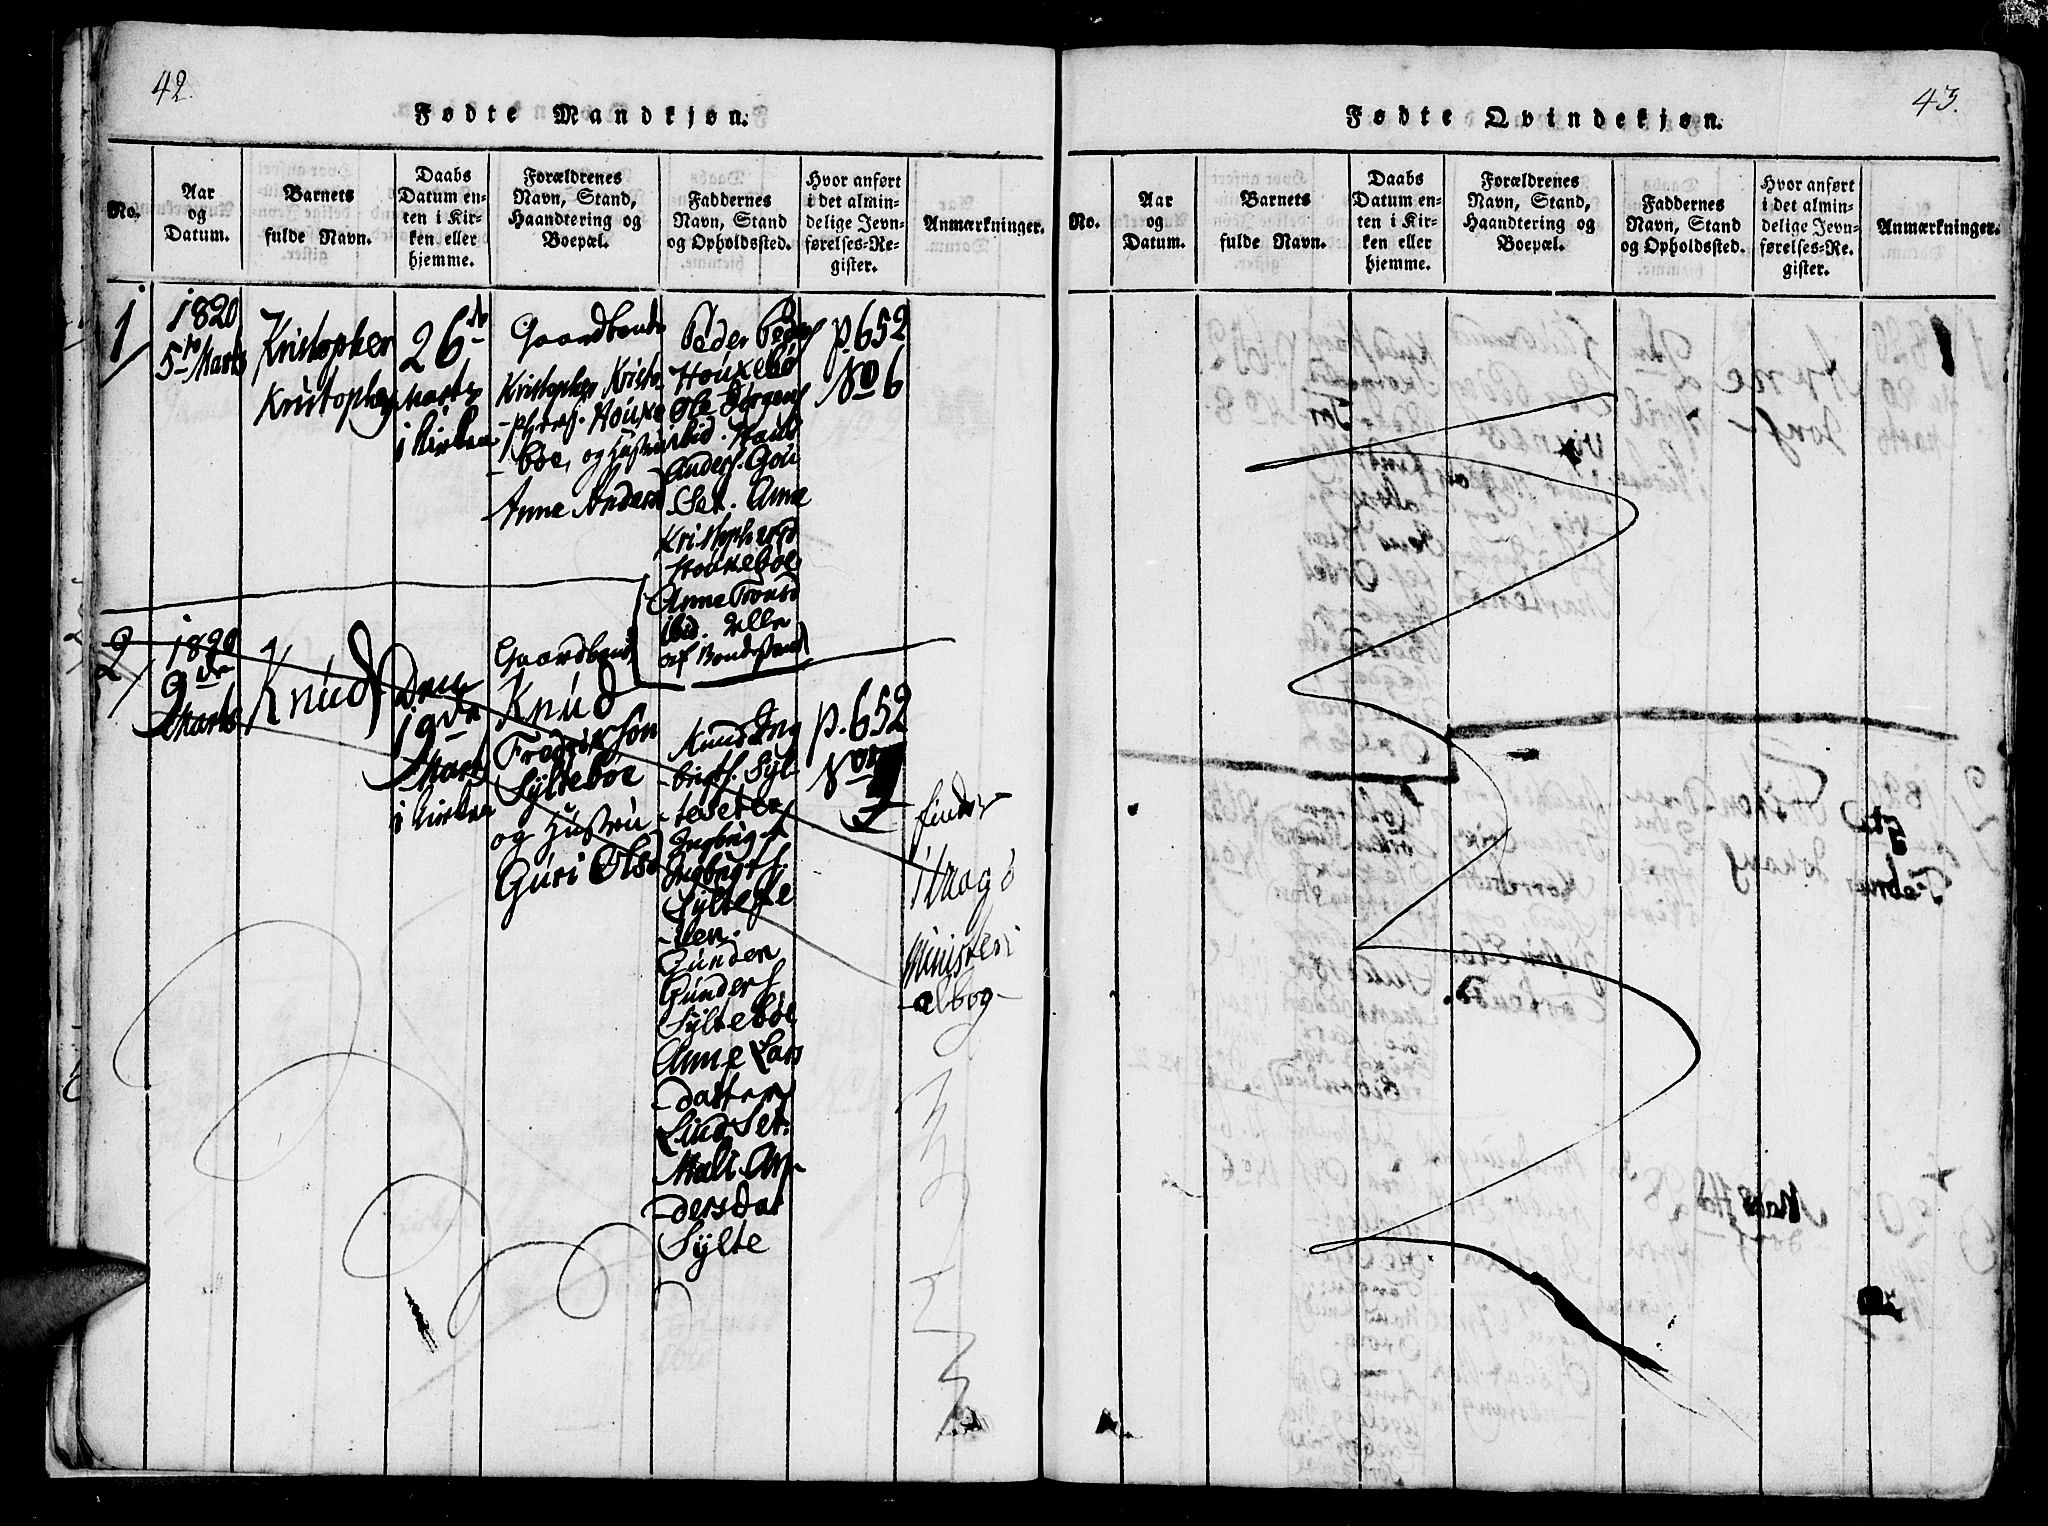 42.
Fødte Mandkjøn.
No.
Aar
og
Datum.
Barnets
fulde Navn.
Daabs
Datum en-
ten i Kir-
ken eller
hjemme.
Forældrenes
Navn, Stand,
Haandtering og
Boepæl.
Faddernes
Navn, Stand
og Opholdssted.
Hvor anført
i det almin-
delige Jevn-
førelses-Re-
gister.
Anmærkninger.
1
1820
5te Marts
Kristopher
Kristophers
26de
Marts
i Kirken
Gaardbonde
Kristopher Kristo
-phers. Houxe
-boe, og Hustru
Anne Andersd
Peder Peders
Houxebø
Ole Jørgens
ibid.
Anders.
Set. Anne
Kristophersd
Houxeboe
Anne
ibid. Alle
af Bondestand
p. 652
No 6
2
1820
9de
Marts
Knud
Den
19de
Marts
i Kirken
Gaardbonde
Knud
Fredrikson
Syltebøe
og Hustru
Guri Olsd
Knud Ing
-brigts. Syl-
-teseter
Ingbrigt
Ingbrigts.
Sylte
Gunder
Gunders
Syltebøe
Anne Lars
-datter
Lindset.
Mali An-
-dersdat
Sylte
p. 652
No
findes
i Aagø
Ministeri
-albog-
43.
Fødte Qvindekjøn.
No.
Aar
og
Datum.
Barnets
fulde Navn.
Daabs
Datum en-
ten i Kir-
ken eller
hjemme.
Forældrenes
Navn, Stand,
Haandtering og
Boepæl.
Faddernes
Navn, Stand
og Opholdssted.
Hvor anført
i det almin-
delige Jevn-
førelses-Re-
gister.
Anmærkninger.